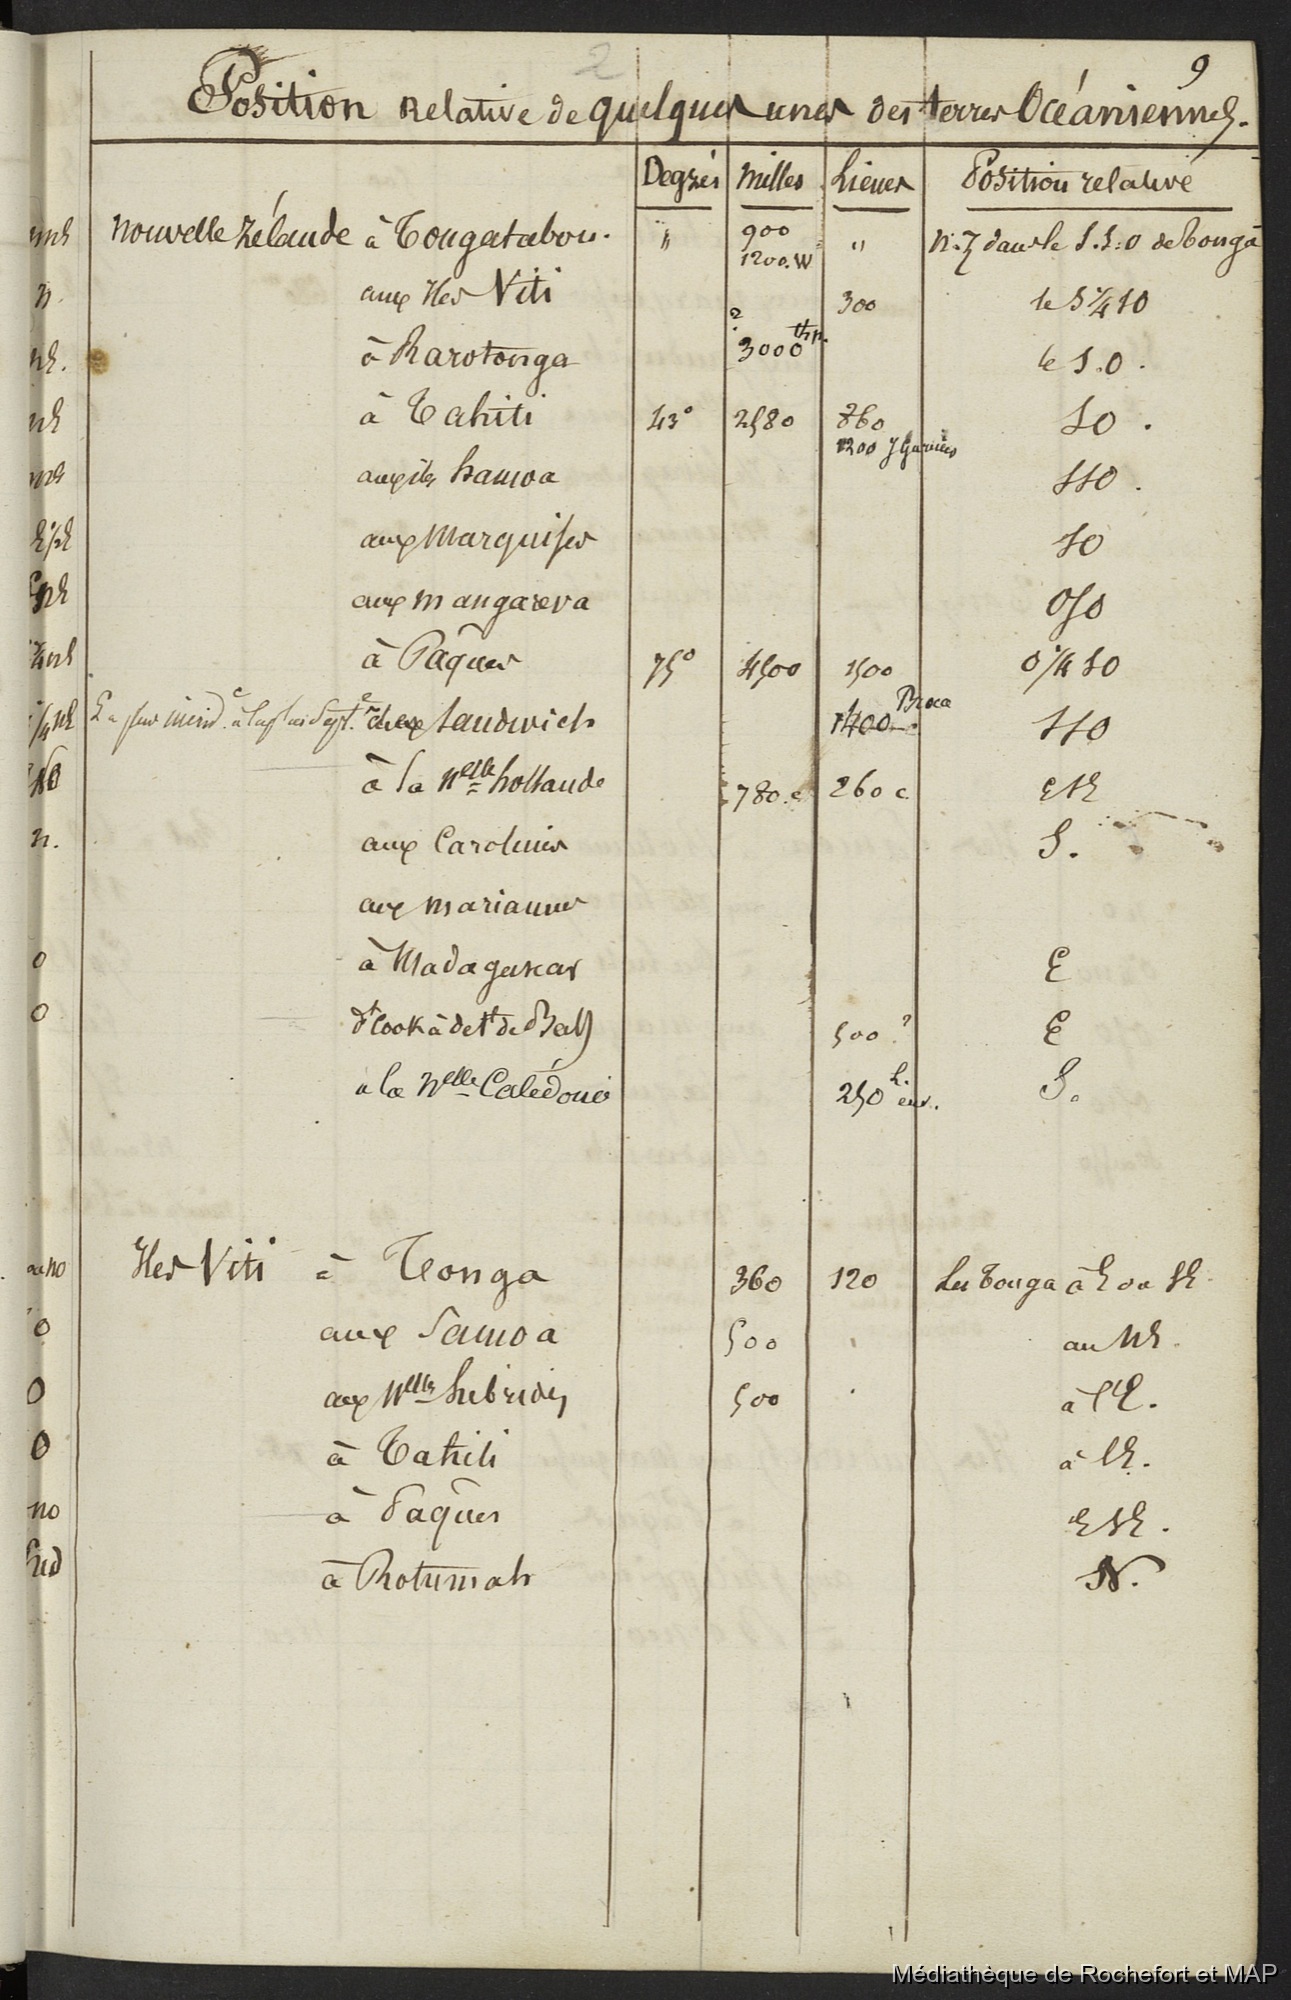 2
9
Position Relative de quelques unes des terres Océaniennes.
Degrés Milles Lieues Position relative
Nouvelle Zélande à Tongatabou. " 900 " N.Z dans le S.S.O de Tonga
1200.W
aux Iles Viti 300 le S 1/4 SO
à Rarotonga ? 3000 le S.O.
à Tahiti 43° 2580 860 SO.
1200 J Garnier
aux iles hamoa SSO.
aux Marquises SO
aux Mangareva OSO
à Pâques 75° 4500 1500 O 1/4 SO
aux Sandwich 1400 Broca SSO
à la Nelle hollande 780.c 260 c ESE
aux Carolines S.
aux mariannes
à Madagascar E
dt Cook à det de Bass 500? E
à la Nelle Calédonie 250 L. env. S.
Iles Viti à Tonga 360 120 Les Tonga à E ou SE
aux Samoa 500 " au NE.
aux Nelles hébrides 500 " à l'E.
à Tahiti à l'E.
à Pâques ESE.
à Rotumah N.
Médiathèque de Rochefort et MAP